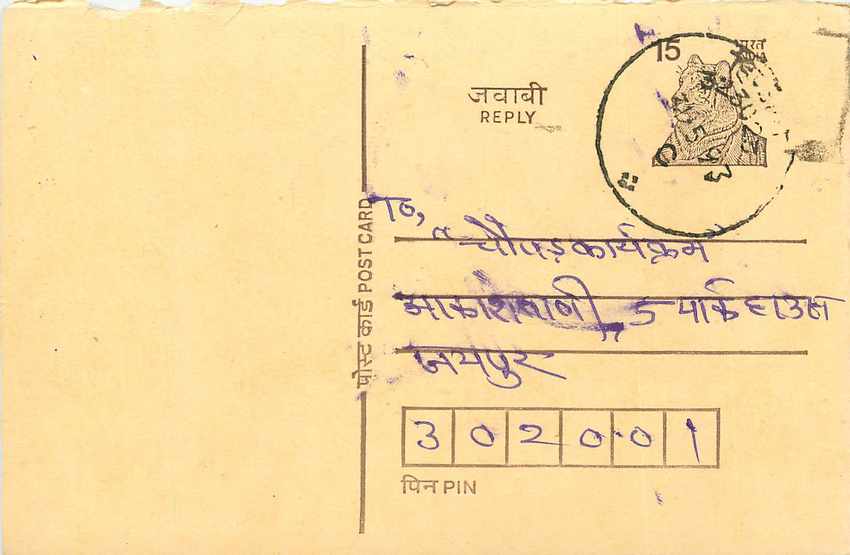 15 भारत
जवाबी
REPLY
30 5 93
पोस्ट कार्ड POST CARD
To,
" चौपड़ कार्यक्रम "
आकाशवाणी, 5 पार्क हाउस
जयपुर
302001
पिन PIN